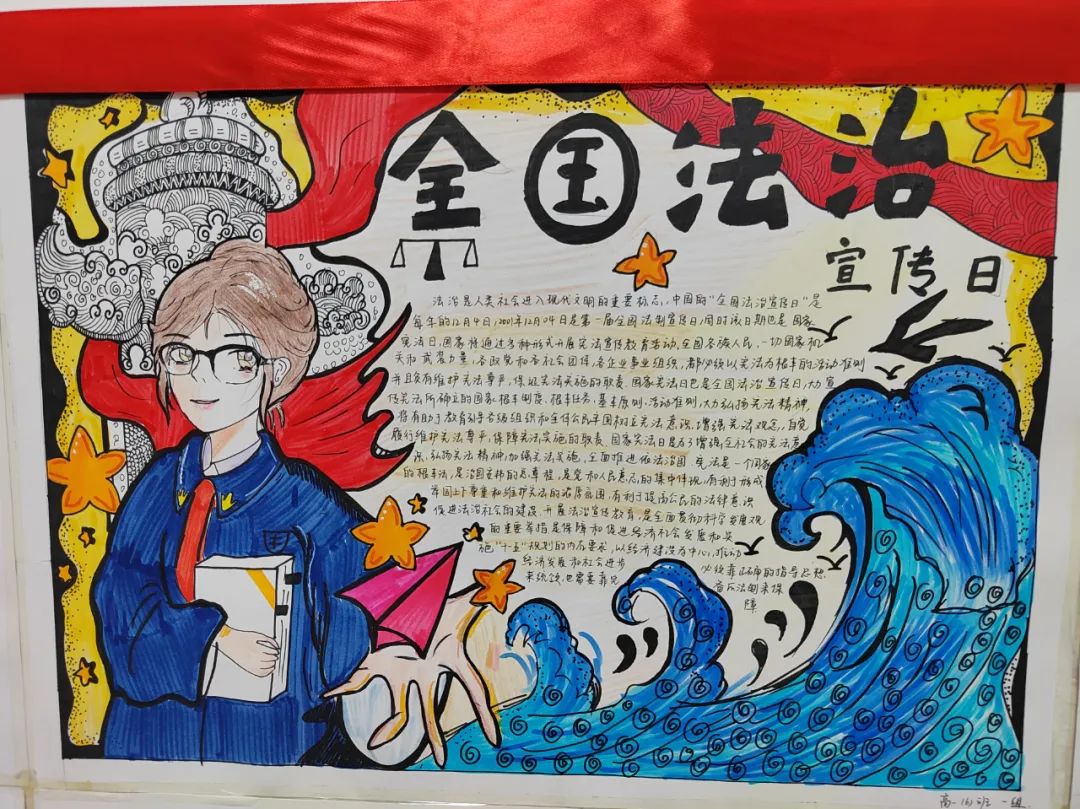 全国法治
宣传日
法治是人类社会进入现代文明的重要标志,中国的"全国法治宣传日"是
每年的12月4日,2001年12月04日是第一届全国法制宣传日,同时该日期也是国家
宪法日,国家将通过多种形式开展宪法宣传教育活动,全国各族人民、一切国家机
关和武装力量、各政党和各社会团体、各企业事业组织,都必须以宪法为根本的活动准则
并且负有维护宪法尊严,保证宪法实施的职责。国家宪法日也是全国法治宣传日,大力宣
传宪法所确立的国家根本制度、根本任务、基本原则、活动准则,大力弘扬宪法精神,
将有助于教育引导各级组织和全体公民牢固树立宪法意识,增强宪法观念,自觉
履行维护宪法尊严,保障宪法实施的职责。国家宪法日是为了增强全社会的宪法意
识,弘扬宪法精神,加强宪法实施,全面推进依法治国 宪法是一个国家
的根本法,是治国安邦的总章程,是党和人民意志的集中体现,有利于形成
举国上下尊重和维护宪法的浓厚氛围,有利于提高公民的法律意识
促进法治社会的建设。开展法治宣传教育,是全面贯彻科学发展观
的重要举措是保障和促进经济社会发展和实
施"十五"规划的内在要求,以经济建设为中心,推动
经济发展和社会进步 必须靠正确的指导思想
来统领,也需要靠 法制来保
障
高一(6)班 一组